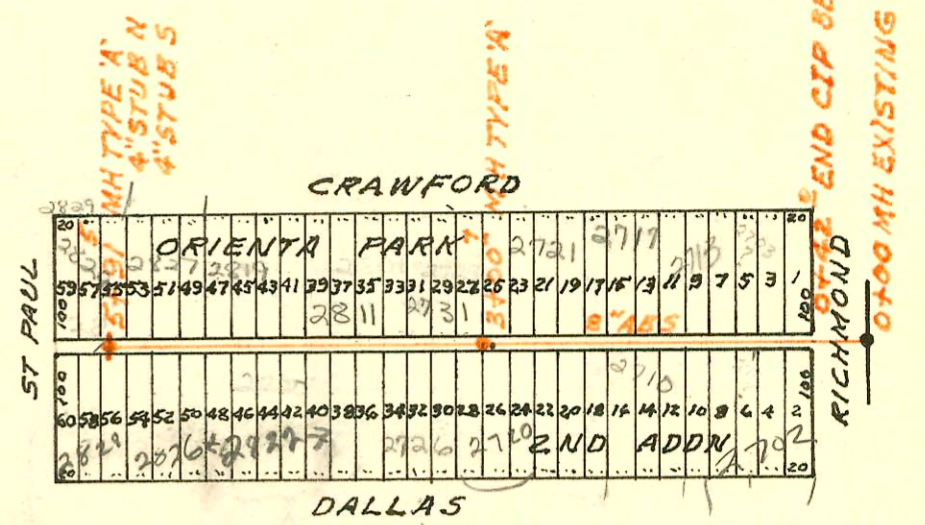 MH TYPE 'A'
4" STUB N
4" STUB S
MH TYPE 'A'
END CIP
0+42
0+00 MH EXISTING
CRAWFORD
2829
20 20
ORIENTA PARK 2721 2717 2713
2827 2819
59 57 55 53 51 49 47 45 43 41 39 37 35 33 31 29 27 25 23 21 19 17 15 13 11 9 7 5 3 1
100 2811 2731 8" ABS 100
ST PAUL
RICHMOND
100 2710 100
60 58 56 54 52 50 48 46 44 42 40 38 36 34 32 30 28 26 24 22 20 18 16 14 12 10 8 6 4 2
2726 2720 2ND ADDN 2702
20 20
DALLAS